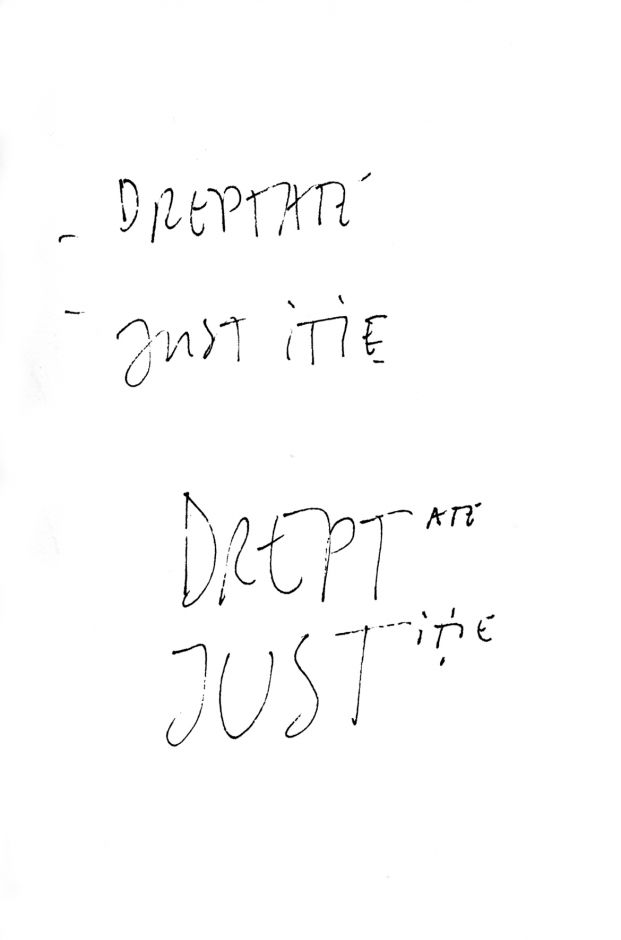 - DREPTATE
- JUSTITIE
DREPTATE
JUSTIȚIE